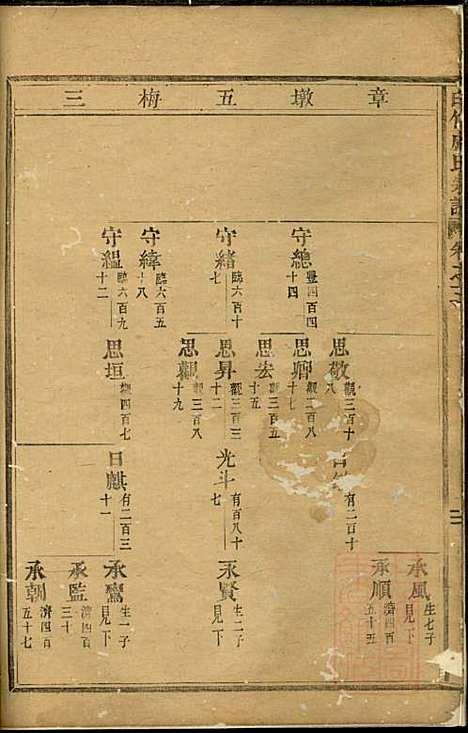 章墩五梅三
守總 豊四百四十四
守緒 臨六百十七
守緯 臨六百五十八
守縕 臨六百九十二
思敬 觀三百十八
思卿 觀三百八十七
思宏 觀三百五十五
思昇 觀三百三十二
思觀 觀三百八十九
思垣 觀四百七
有二百十
光斗 有百八十七
日麒 有二百三十一
承風 生七子見下
承順 濟四百五十五
永賢 生二子見下
承鸞 生一子見下
承監 濟四百三十
承朝 濟四百五十七
氏宗譜